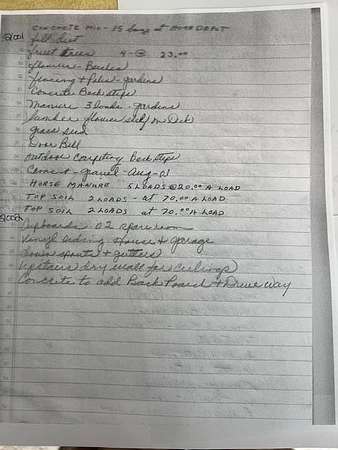 CONCRETE MIX - 15 bags at HOMEDEPOT
2001 fill dirt
fruit trees 4 - @ 23.00
flowers - Benches
fencing + Poles - gardens
Concrete Back steps
Manure 3 loads - gardens
Lumber flower self on Deck
grass seed
Door Bell
outdoor Carpeting Back steps
Cement - gravel - Aug-01
HORSE MANURE 5 LOADS @ 20.00 A LOAD
TOP SOIL 2 LOADS - at 70.00 A LOAD
TOP SOIL 2 LOADS at 70.00 A LOAD
2002 Cupboards - 02 spare room
Vinyl Siding House + garage
Down spouts + gutters
Upstairs Dry wall for Ceilings
Concrete to add Back Porch + Drive way